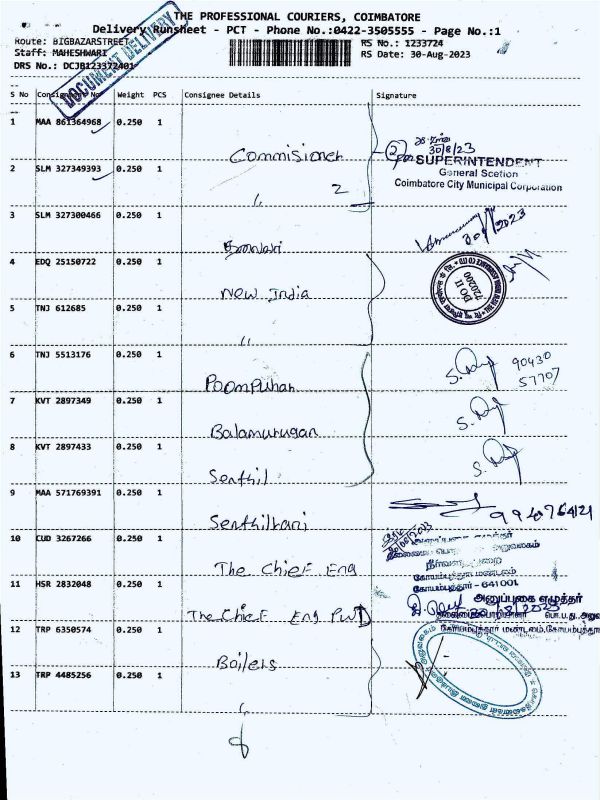 THE PROFESSIONAL COURIERS, COIMBATORE
Delivery Runsheet - PCT - Phone No.:0422-3505555 - Page No.:1
Route: BIGBAZARSTREET
RS No.: 1233724
Staff: MAHESHWARI
RS Date: 30-Aug-2023
DRS No.: DCJB123372401
DOCUMENT DELIVERY
S No Consignment No Weight PCS Consignee Details Signature
1 MAA 861364968 0.250 1
Commisioner
30/8/23
SUPERINTENDENT
General Scetion
Coimbatore City Municipal Corporation
2 SLM 327349393 0.250 1
" 2
3 SLM 327300466 0.250 1
4 EDQ 25150722 0.250 1
New India
DO II
720200
5 TNJ 612685 0.250 1
"
6 TNJ 5513176 0.250 1
Poompuhar
90430
57707
7 KVT 2897349 0.250 1
Balamurugan
8 KVT 2897433 0.250 1
Senthil
9 MAA 571769391 0.250 1
Senthilrani
10 CUD 3267266 0.250 1
The Chief Eng
கோயம்புத்தூர் மண்டலம்
கோயம்புத்தூர் - 641001
11 HSR 2832048 0.250 1
The Chief Eng PWD
அனுப்புகை எழுத்தர்
12 TRP 6350574 0.250 1
Boilers
13 TRP 4485256 0.250 1
"
8